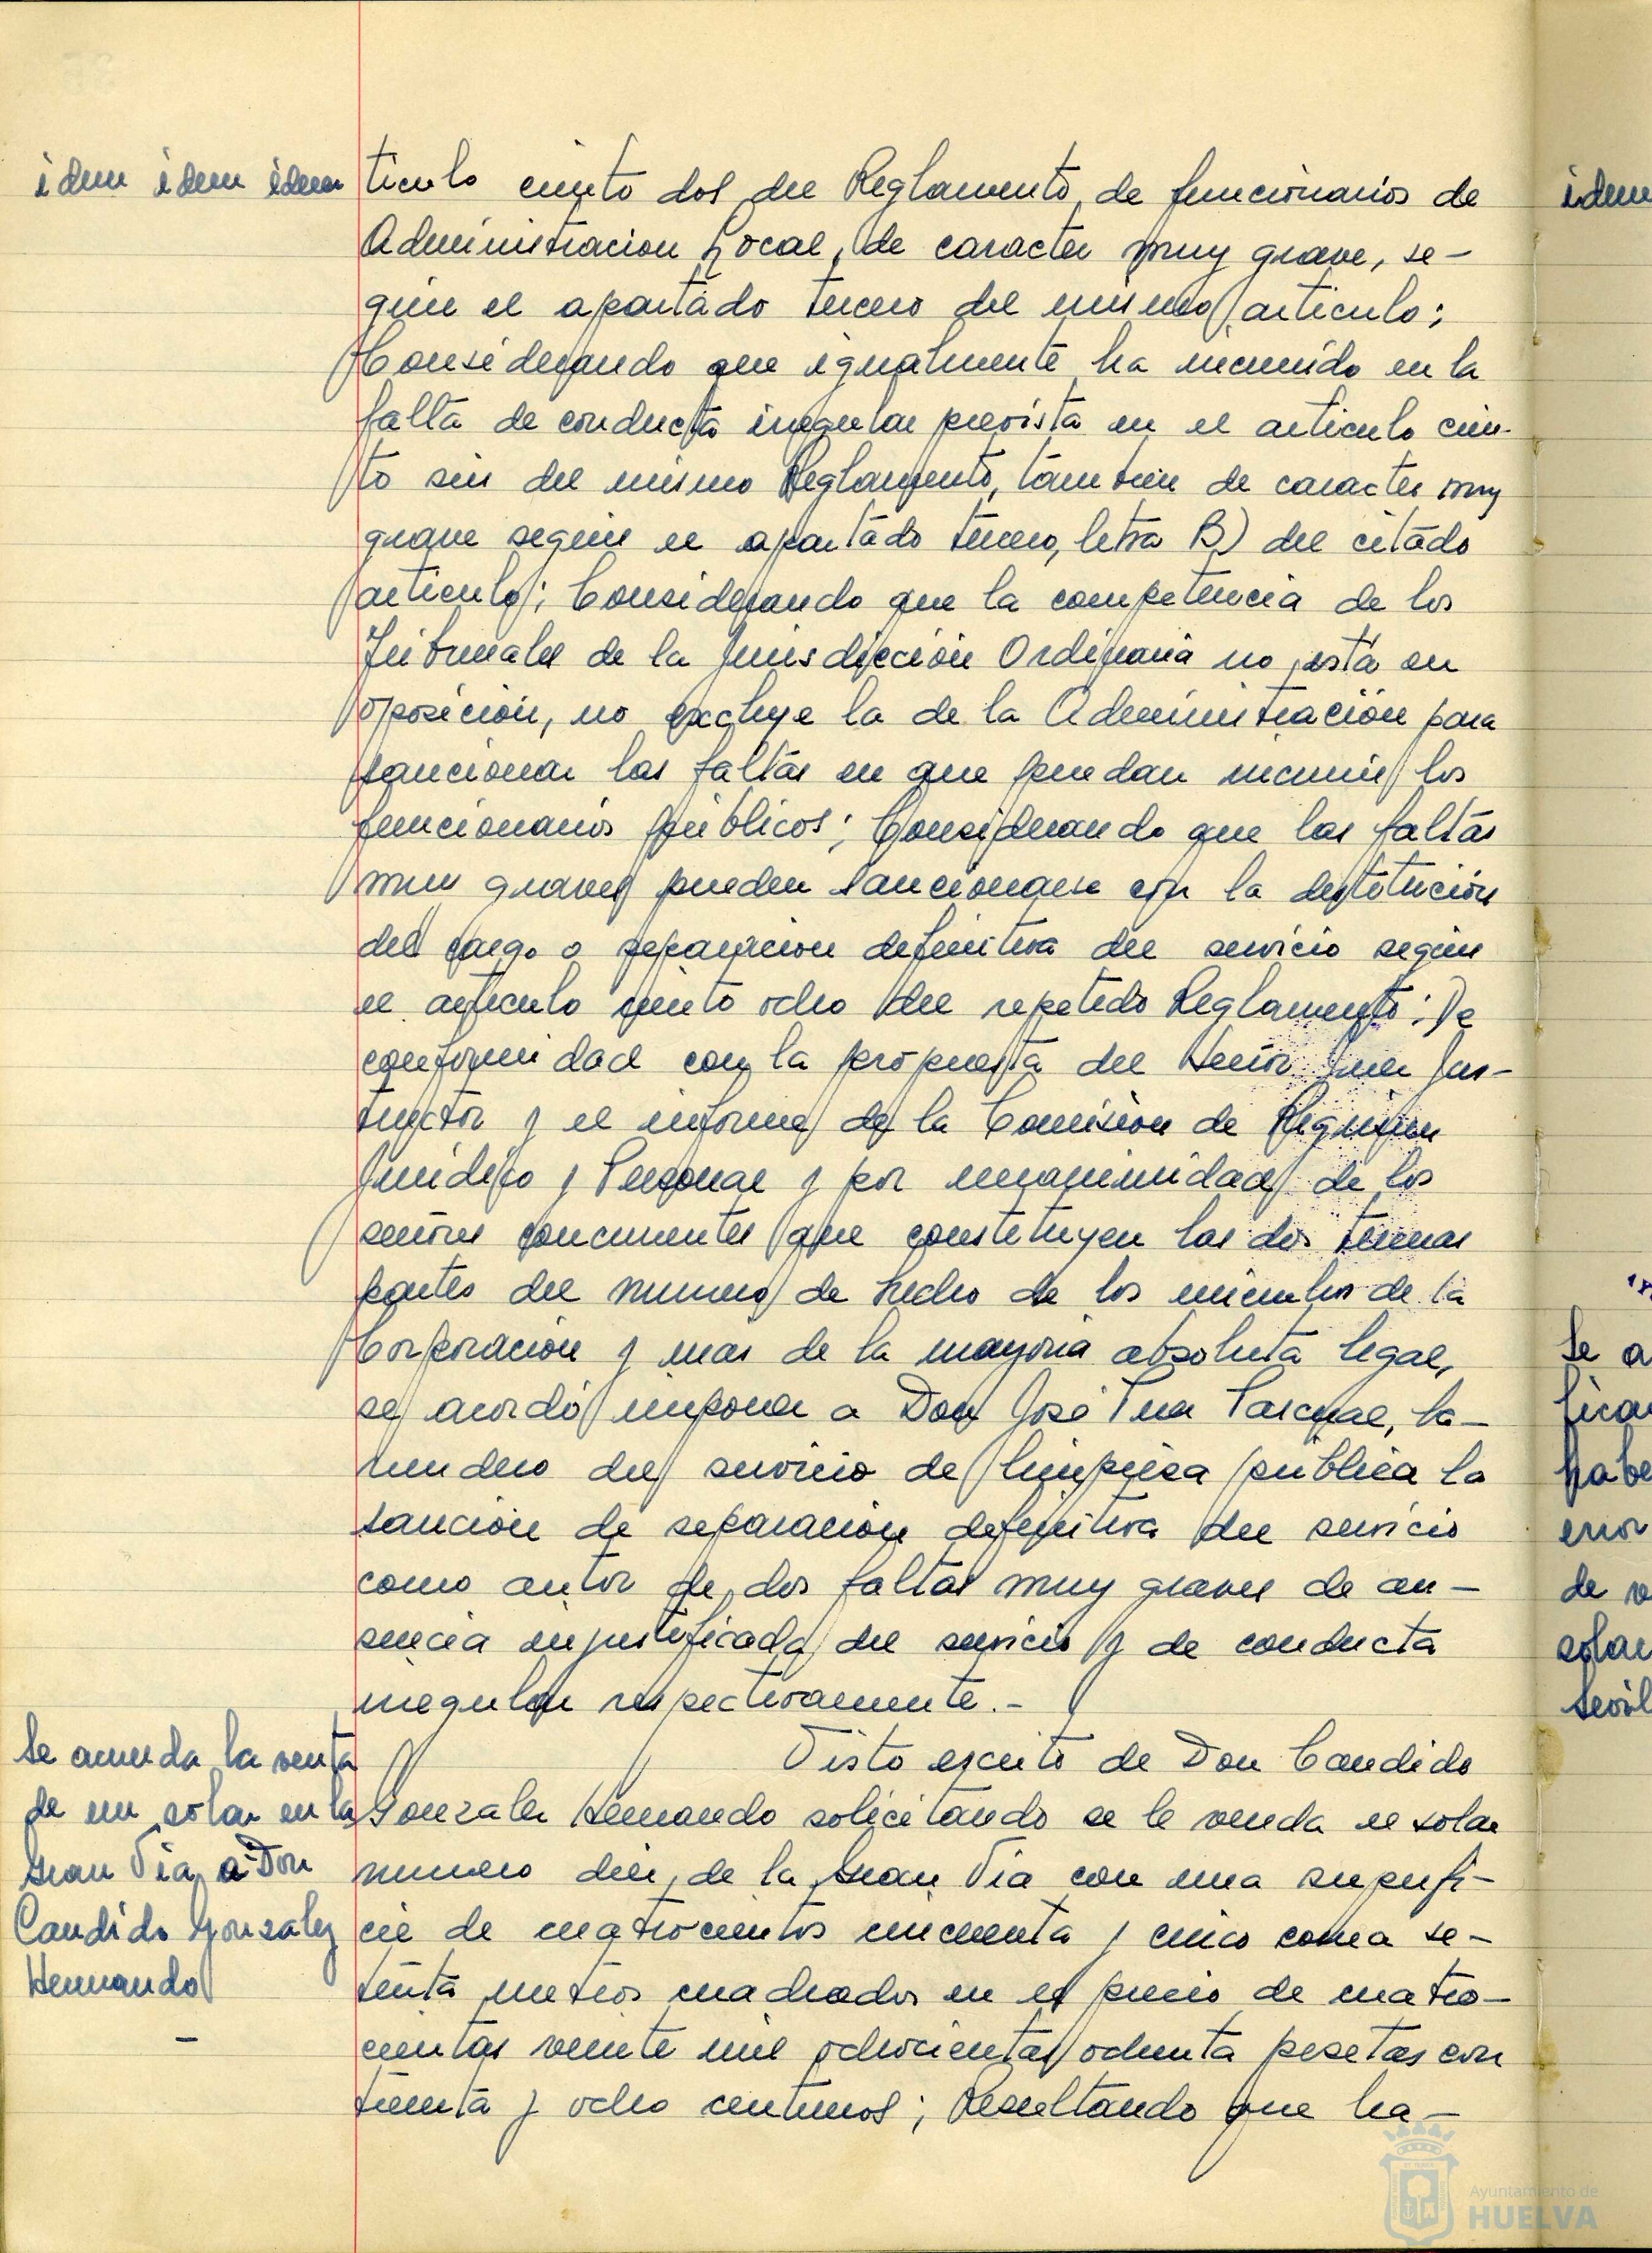 idem idem idem
ticulo ciento dos del Reglamento de funcionarios de
Administracion Local, de caracter muy grave, se-
gún el apartado tercero del mismo articulo;
Considerando que igualmente ha incurrido en la
falta de conducta irregular prevista en el articulo cien-
to seis del mismo Reglamento, tambien de caracter muy
grave según el apartado tercero, letra B) del citado
articulo; Considerando que la competencia de los
Tribunales de la Jurisdicción Ordinaria no está en
oposición, no excluye la de la Administración para
sancionar las faltas en que puedan incurrir los
funcionarios públicos; Considerando que las faltas
muy graves pueden sancionarse con la destitución
del cargo o separacion definitiva del servicio según
el articulo ciento ocho del repetido Reglamento; De
conformidad con la propuesta del Señor Juez Ins-
tructor y el informe de la Comision de Régimen
Juridico y Personal y por unanimidad de los
señores concurrentes que constituyen las dos terceras
partes del numero de hecho de los miembros de la
Corporación y mas de la mayoria absoluta legal,
se acordó imponer a Don José Pascual, ba-
rrendero del servicio de limpieza pública la
sanción de separación definitiva del servicio
como autor de dos faltas muy graves de au-
sencia injustificada del servicio y de conducta
irregular respectivamente.-
Se acuerda la venta
de un solar en la
Gran Via a Don
Candido Gonzalez
Hernando
-
Visto escrito de Don Candido
Gonzalez Hernando solicitando se le venda el solar
numero diez de la Gran Via con una superfi-
cie de cuatrocientos cincuenta y cinco coma se-
tenta metros cuadrados en el precio de cuatro-
cientas veinte mil ochocientas ochenta pesetas con
treinta y ocho centimos; Resultando que ha-
idem
Se a
ficar
habe
error
de
solar
Sevil
Ayuntamiento de
HUELVA